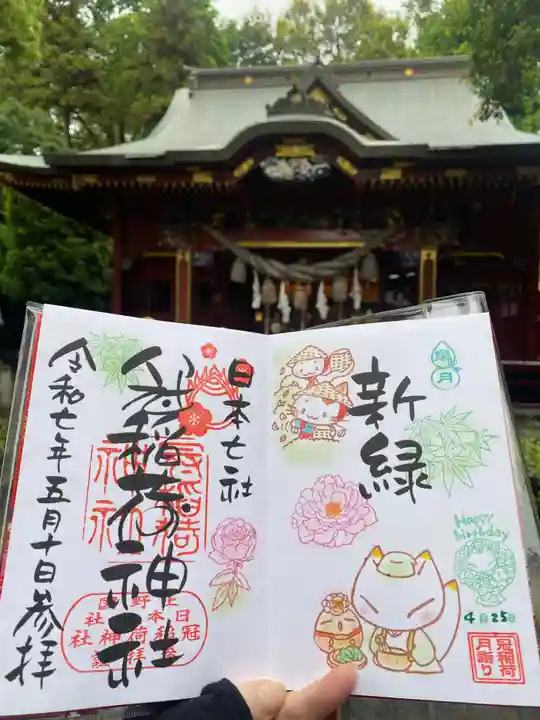 新緑
皐月
Happy
birthday
4月25日
冠稲荷
月詣り
日本七社
冠稲荷神社
令和七年五月十日参拝